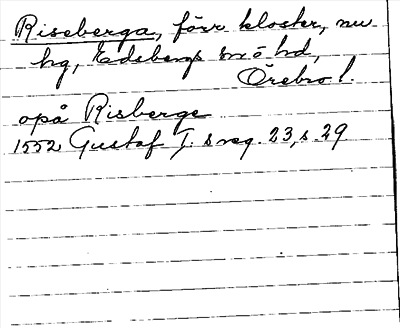 Riseberga, förr kloster, nu
hg, Edsbergs sn o hd,
Örebro l.
opå Risberge
1552 Gustaf I:s reg. 23, s. 29